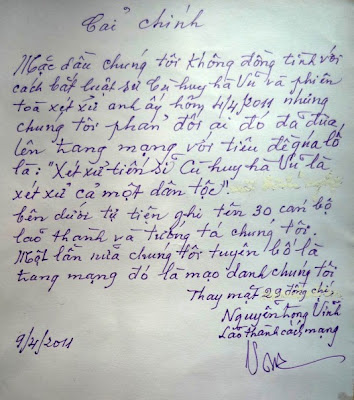 Cải chính
Mặc dầu chúng tôi không đồng tình với
cách bắt luật sư Cù huy hà Vũ và phiên
toà xét xử anh ấy hôm 4/4/2011 nhưng
chúng tôi phản đối ai đó đã đưa
lên trang mạng với tiêu đề quá lố
là: "Xét xử tiến sĩ Cù huy hà Vũ là
xét xử cả một dân tộc"
bên dưới tự tiện ghi tên 30 cán bộ
lão thành và tướng tá chúng tôi.
Một lần nữa chúng tôi tuyên bố là
trang mạng đó là mạo danh chúng tôi
Thay mặt 29 đồng chí
Nguyễn trọng Vĩnh
Lão thành cách mạng
9/4/2011